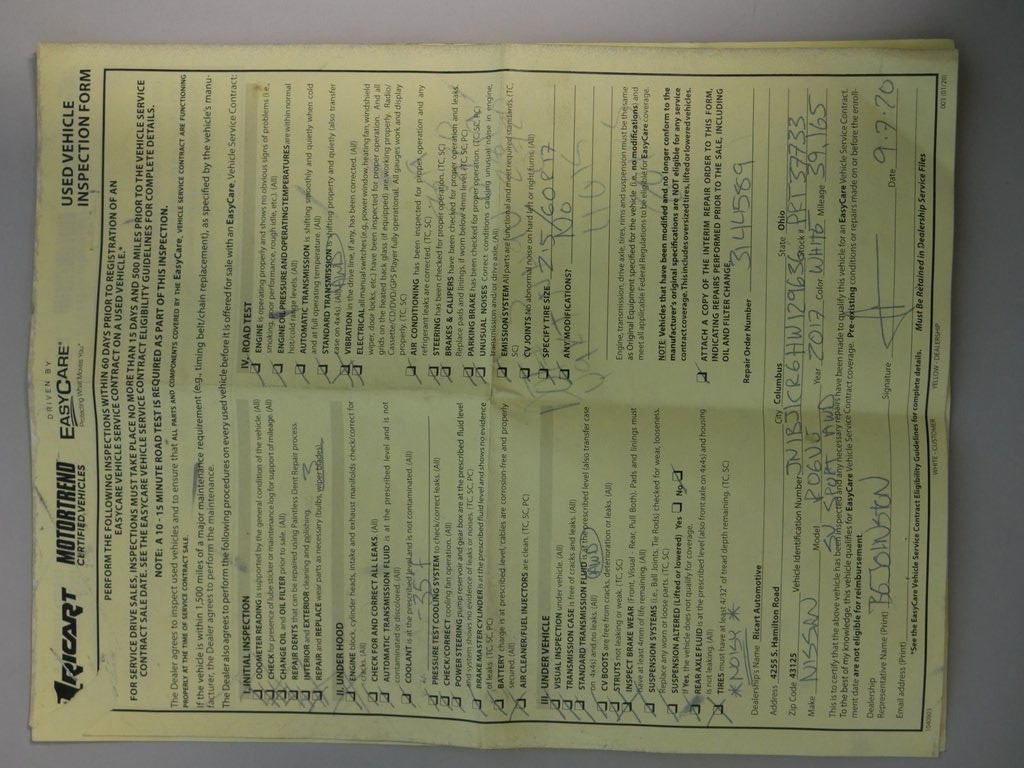 RICART
MOTORTREND
CERTIFIED VEHICLES
DRIVEN BY
EASYCARE
Protecting What Moves You.
USED VEHICLE
INSPECTION FORM
PERFORM THE FOLLOWING INSPECTIONS WITHIN 60 DAYS PRIOR TO REGISTRATION OF AN
EASYCARE VEHICLE SERVICE CONTRACT ON A USED VEHICLE.*
FOR SERVICE DRIVE SALES, INSPECTIONS MUST TAKE PLACE NO MORE THAN 15 DAYS AND 500 MILES PRIOR TO THE VEHICLE SERVICE
CONTRACT SALE DATE. SEE THE EASYCARE VEHICLE SERVICE CONTRACT ELIGIBILITY GUIDELINES FOR COMPLETE DETAILS.
NOTE: A 10 - 15 MINUTE ROAD TEST IS REQUIRED AS PART OF THIS INSPECTION.
The Dealer agrees to inspect used vehicles and to ensure that ALL PARTS AND COMPONENTS COVERED BY THE EasyCare, VEHICLE SERVICE CONTRACT ARE FUNCTIONING
PROPERLY AT THE TIME OF VEHICLE SERVICE CONTRACT SALE.
If the vehicle is within 1,500 miles of a major maintenance requirement (e.g., timing belt/chain replacement), as specified by the vehicle's manu-
facturer, the Dealer agrees to perform the maintenance.
The Dealer also agrees to perform the following procedures on every used vehicle before it is offered for sale with an EasyCare, Vehicle Service Contract:
I. INITIAL INSPECTION
ODOMETER READING is supported by the general condition of the vehicle. (All)
CHECK for presence of lube sticker or maintenance log for support of mileage. (All)
CHANGE OIL AND OIL FILTER prior to sale. (All)
REPAIR DENTS that can be repaired using Paintless Dent Repair process.
INTERIOR and EXTERIOR cleaning and polishing.
REPAIR and REPLACE wear parts as necessary (bulbs, wiper blades).
II. UNDER HOOD
ENGINE block, cylinder heads, intake and exhaust manifolds check/correct for
cracks. (All)
CHECK FOR AND CORRECT ALL LEAKS. (All)
AUTOMATIC TRANSMISSION FLUID is at the prescribed level and is not
contaminated or discolored. (All)
COOLANT is at the prescribed level and is not contaminated. (All)
-35+
PRESSURE TEST COOLING SYSTEM to check/correct leaks. (All)
CHECK/CORRECT cooling fan operation. (All)
POWER STEERING pump reservoir and gear box are at the prescribed fluid level
and system shows no evidence of leaks or noises. (TC, SC)
BRAKE MASTER CYLINDER is at the prescribed fluid level and shows no evidence
of leaks. (TC, SC, PC)
BATTERY charge is at prescribed level, cables are corrosion-free and properly
secured. (All)
AIR CLEANER/FUEL INJECTORS are clean. (TC, SC, PC)
III. UNDER VEHICLE
VISUAL INSPECTION under vehicle. (All)
TRANSMISSION CASE is free of cracks and leaks. (All)
STANDARD TRANSMISSION FLUID is at the prescribed level (also transfer case
on 4x4s) and no leaks. (All)
AWD
CV BOOTS are free from cracks, deterioration or leaks. (All)
STRUTS not leaking or weak. (TC, SC)
INSPECT BRAKE WEAR (Front, Visual - Rear, Pull Both). Pads and linings must
have at least 50% of life remaining. (All)
SUSPENSION SYSTEMS (i.e., Ball Joints, Tie Rods) checked for wear, looseness.
Replace any worn or loose parts. (TC, SC)
SUSPENSION ALTERED (Lifted or lowered) Yes No
If Yes, the vehicle does not qualify for coverage. (All)
REAR AXLE FLUID is at the prescribed level (also front axle on 4x4s) and housing
is not leaking. (All)
TIRES must have at least 4/32" of tread depth remaining. (TC, SC)
*NOISY*
IV. ROAD TEST
ENGINE is operating properly and shows no obvious signs of problems (i.e.,
smoking, poor performance, rough idle, etc.). (All)
ENGINE OIL PRESSURE AND OPERATING TEMPERATURES are within normal
hot/cold range levels. (All)
AUTOMATIC TRANSMISSION is shifting smoothly and quietly when cold
and at full operating temperature. (All)
STANDARD TRANSMISSION is shifting properly and quietly (also transfer
case on 4x4s). (All) AWD
VIBRATION in the drive line, if any, has been corrected. (All)
ELECTRICAL, all manual switches (e.g., power window, heating fan, windshield
wiper, door locks, etc.) have been inspected for proper operation. And all
grids on the heated back glass (if equipped) are working properly. Radio/
Cassette/CD/DVD/GPS Player fully operational. All gauges work and display
properly. (TC, SC)
AIR CONDITIONING has been checked for proper operation and any
refrigerant leaks are corrected. (TC, SC)
STEERING has been checked for proper operation. (TC, SC)
BRAKES & CALIPERS have been checked for proper operation and leaks.
Replace pads and linings, if worn below minimum level. (TC, SC, PC)
PARKING BRAKE has been checked for proper operation. (TC, SC, PC)
UNUSUAL NOISES Correct conditions causing unusual noise in engine,
transmission and/or drive axle. (All)
EMISSION SYSTEM All parts are functional and meet required standards. (TC,
SC)
CV JOINTS No abnormal noise on hard left or right turns. (All)
SPECIFY TIRE SIZE: 215/60R17
ANY MODIFICATIONS? NO
Engine, transmission, drive axle, tires, rims and suspension must be the same
as Original Equipment specified for the vehicle (i.e., no modifications) and
meet all applicable Federal Regulations to be eligible for EasyCare coverage.
NOTE: Vehicles that have been modified and no longer conform to the
manufacturer's original specifications are NOT eligible for any service
contract coverage. This includes oversized tires, lifted or lowered vehicles.
ATTACH A COPY OF THE INTERIM REPAIR ORDER TO THIS FORM,
INDICATING REPAIRS PERFORMED PRIOR TO THE SALE, INCLUDING
OIL AND FILTER CHANGE.
Repair Order Number 3144589
Dealership's Name Ricart Automotive
Address 4255 S. Hamilton Road City Columbus State Ohio
Zip Code 43125 Vehicle Identification Number JN1BJ1CR6HW129636 Stock # PRT37733
Make NISSAN Model ROGUE SPORT Year 2017 Color WHITE Mileage 39,165
SV AWD
This is to certify that the above vehicle has been inspected and any necessary repairs have been made to qualify this vehicle for an EasyCare Vehicle Service Contract.
To the best of my knowledge, this vehicle qualifies for EasyCare Vehicle Service Contract coverage. Pre-existing conditions or repairs made on or before the enroll-
ment date are not eligible for reimbursement.
Dealership
Representative Name (Print) BOJOINSTON Signature Date 9.7.20
Email address (Print)
*See the EasyCare Vehicle Service Contract Eligibility Guidelines for complete details. Must Be Retained in Dealership Service Files
WHITE - CUSTOMER YELLOW - DEALERSHIP 003 (01/20)